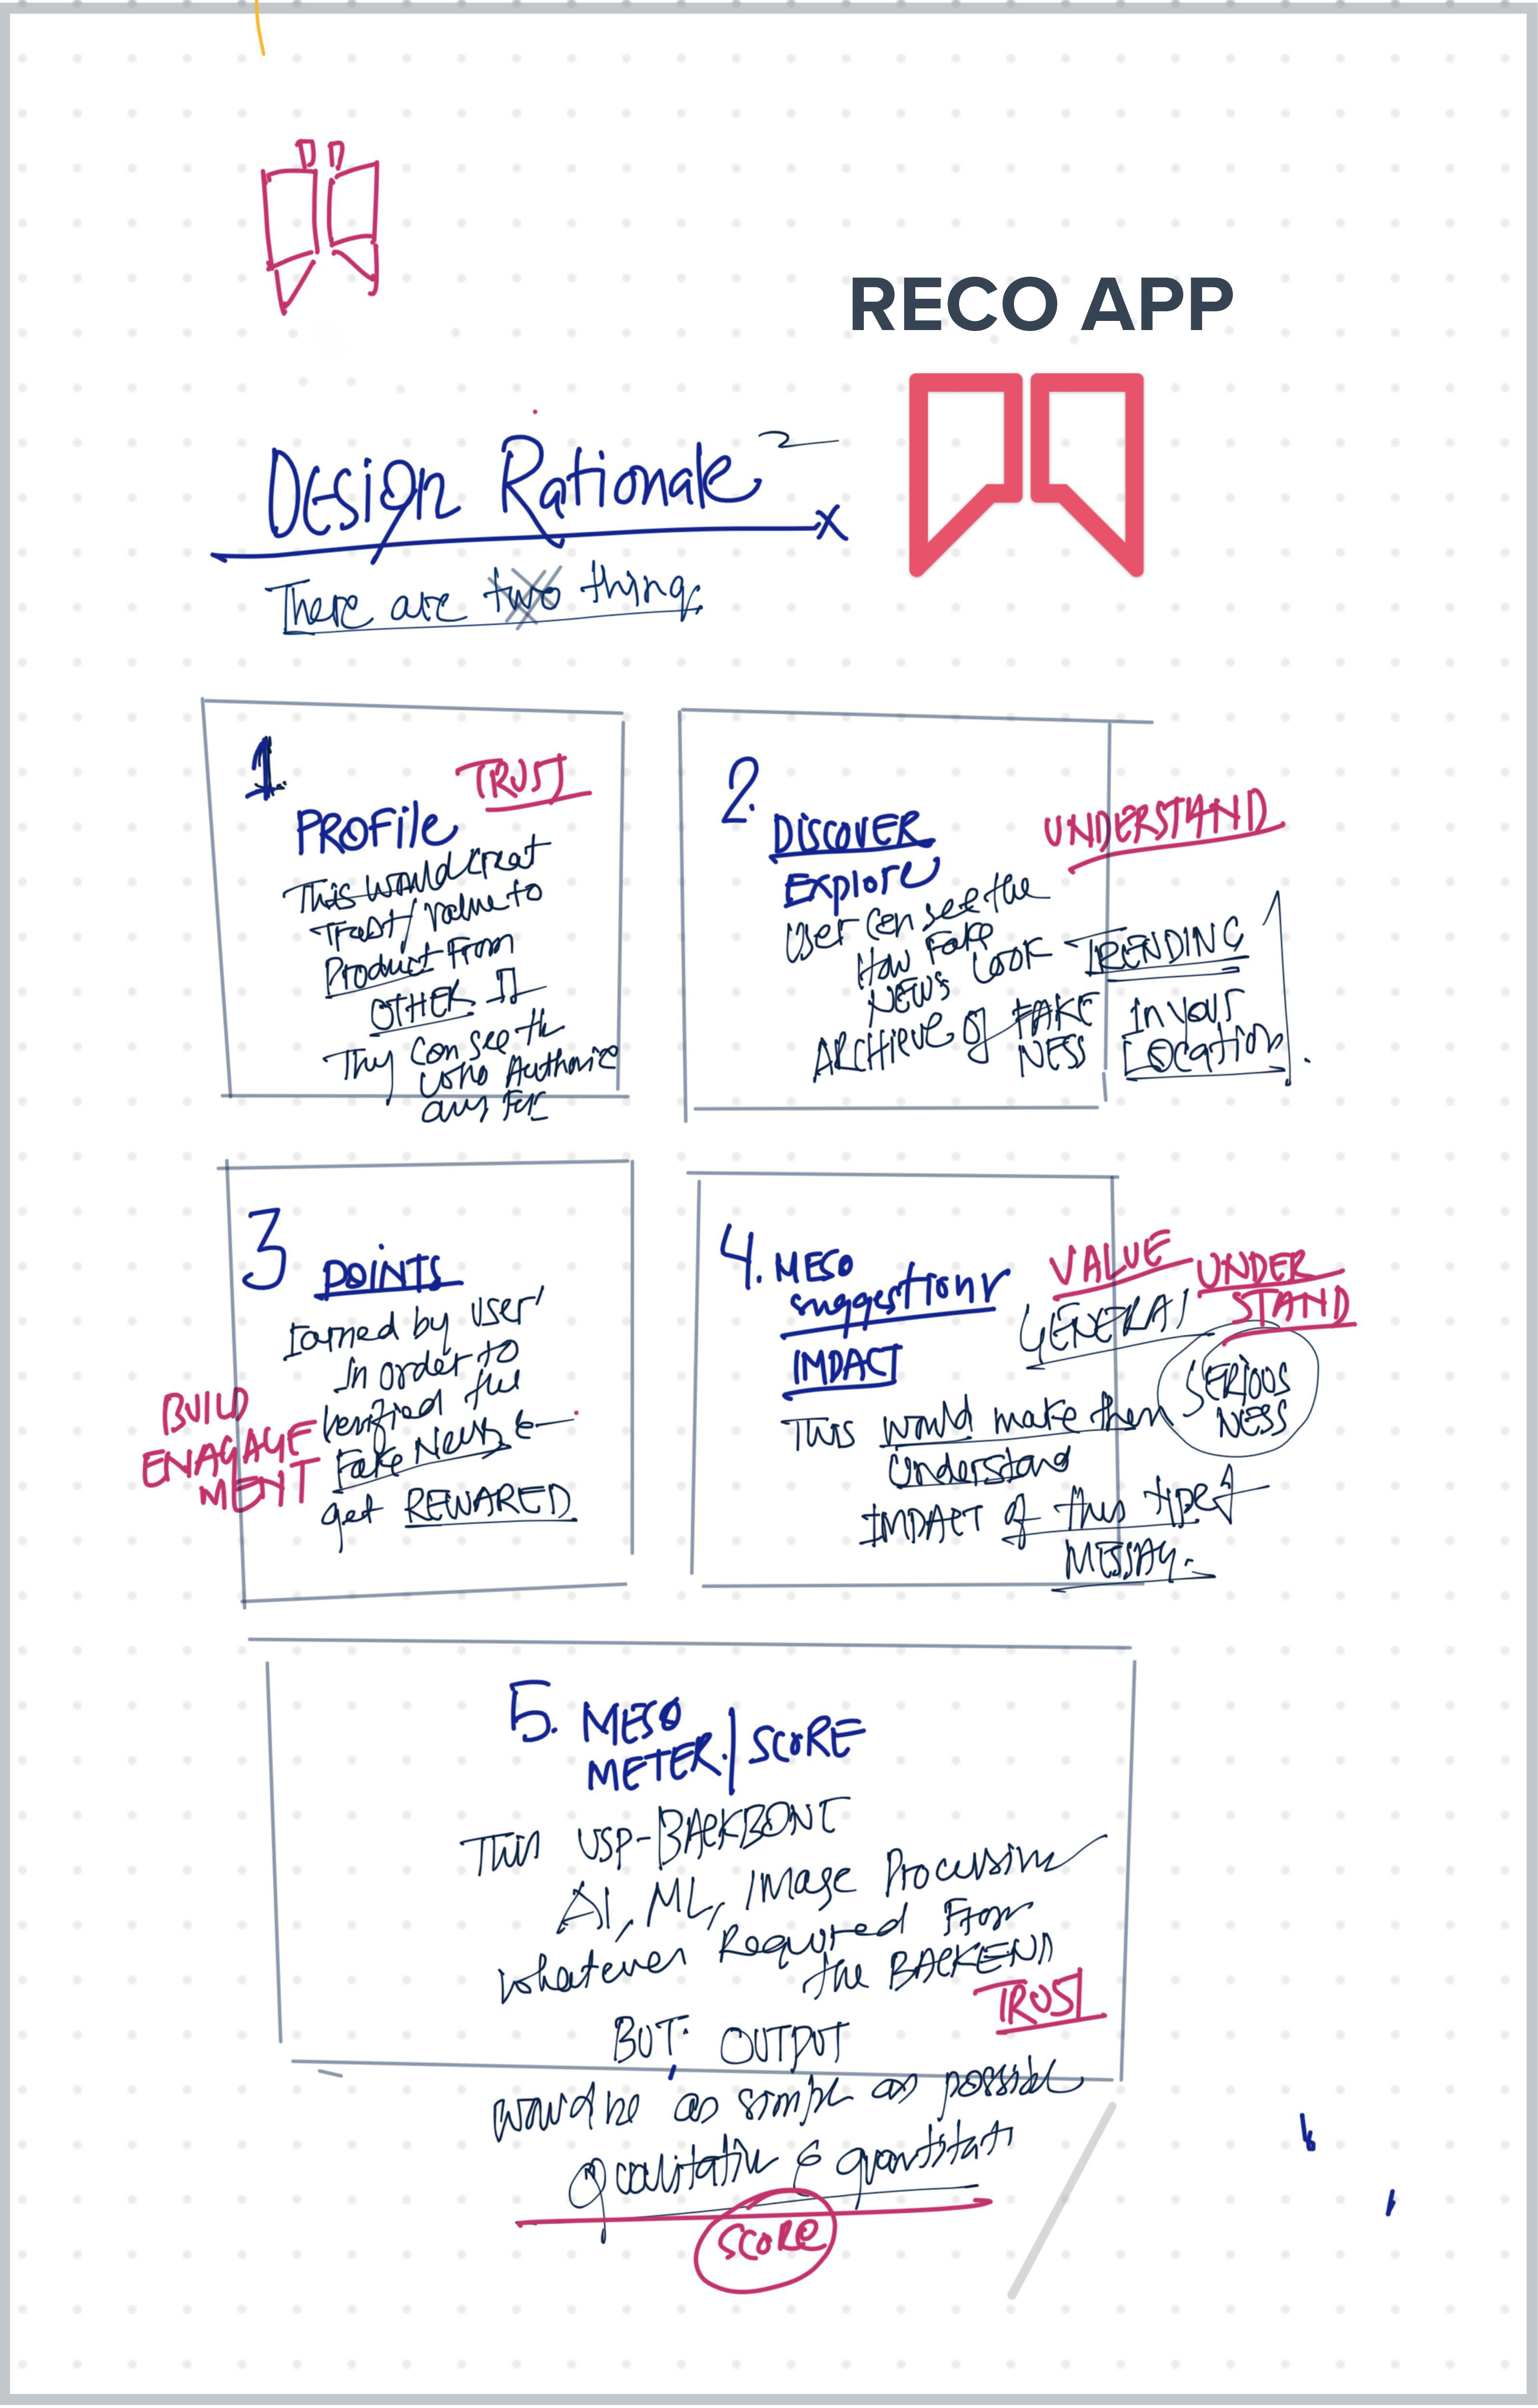 RECO APP
Design Rationale
There are two things
1.
TRUST
PROFile
This would creat
Trust/value to
Product From
OTHER.
They can see the
who Authorize
any
2.
DISCOVER
UNDERSTAND
Explore
User can see the
How Fake
NEWS LOOK
ARCHIEVE of FAKE
NESS
TRENDING
In your
Location.
3
POINTS
Earned by user
In order to
verified the
Fake News &
get REWARED
BUILD
ENAGAGE
MENT
4. MESO
suggestion
IMPACT
VALUE
UNDER
STAND
GENERAL
SERIOUS
NESS
This would make them
Understand
IMPACT of this type of
MESSAG.
5. MESO
METER. | SCORE
This USP-BACKBONE
AI, ML, Image Processin
whatever Required From
the BACKEND
TRUST
BUT OUTPUT
would be as simple as possible
qualitative & quantitat
SCORE